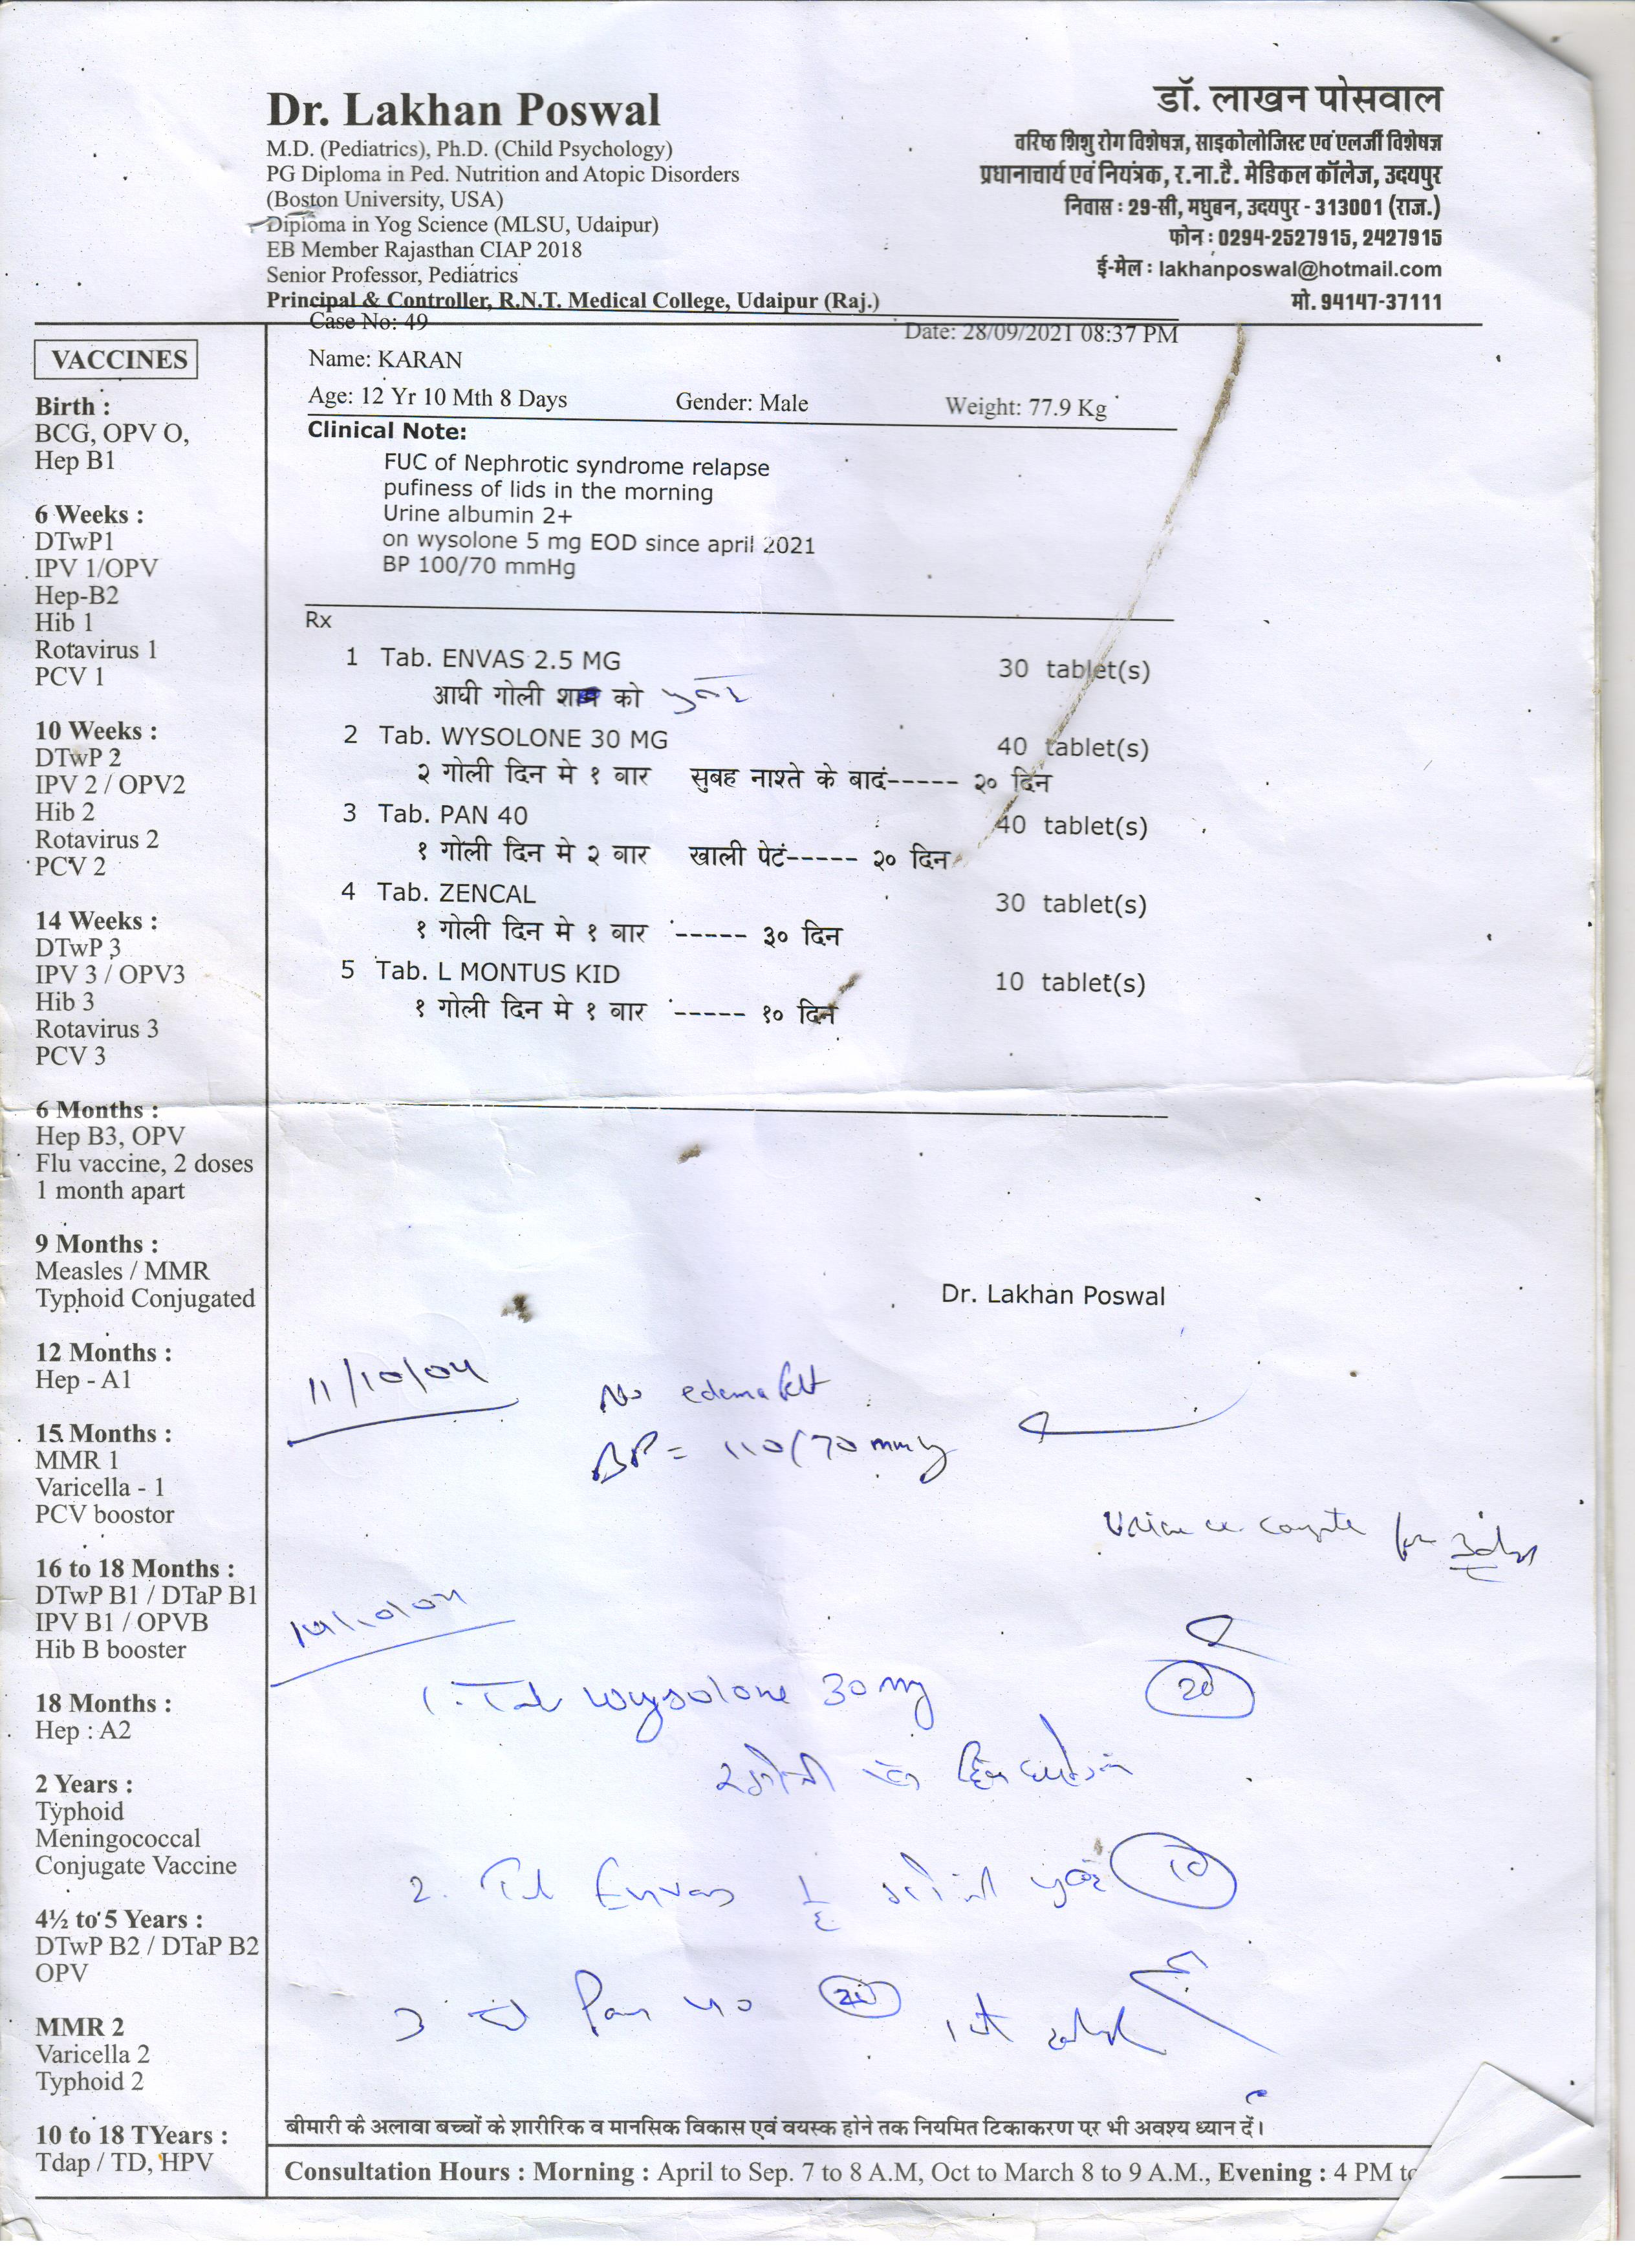 Dr. Lakhan Poswal
M.D. (Pediatrics), Ph.D. (Child Psychology)
PG Diploma in Ped. Nutrition and Atopic Disorders
(Boston University, USA)
Diploma in Yog Science (MLSU, Udaipur)
EB Member Rajasthan CIAP 2018
Senior Professor, Pediatrics
Principal & Controller, R.N.T. Medical College, Udaipur (Raj.)
डॉ. लाखन पोसवाल
वरिष्ठ शिशु रोग विशेषज्ञ, साइकोलोजिस्ट एवं एलर्जी विशेषज्ञ
प्रधानाचार्य एवं नियंत्रक, र.ना.टै. मेडिकल कॉलेज, उदयपुर
निवास : 29-सी, मधुबन, उदयपुर - 313001 (राज.)
फोन : 0294-2527915, 2427915
ई-मेल : lakhanposwal@hotmail.com
मो. 94147-37111
VACCINES
Birth :
BCG, OPV O,
Hep B1
6 Weeks :
DTwP1
IPV 1/OPV
Hep-B2
Hib 1
Rotavirus 1
PCV 1
10 Weeks :
DTwP 2
IPV 2 / OPV2
Hib 2
Rotavirus 2
PCV 2
14 Weeks :
DTwP 3
IPV 3 / OPV3
Hib 3
Rotavirus 3
PCV 3
6 Months :
Hep B3, OPV
Flu vaccine, 2 doses
1 month apart
9 Months :
Measles / MMR
Typhoid Conjugated
12 Months :
Hep - A1
15 Months :
MMR 1
Varicella - 1
PCV boostor
16 to 18 Months :
DTwP B1 / DTaP B1
IPV B1 / OPVB
Hib B booster
18 Months :
Hep : A2
2 Years :
Typhoid
Meningococcal
Conjugate Vaccine
4½ to 5 Years :
DTwP B2 / DTaP B2
OPV
MMR 2
Varicella 2
Typhoid 2
10 to 18 TYears :
Tdap / TD, HPV
Case No: 49
Date: 28/09/2021 08:37 PM
Name: KARAN
Age: 12 Yr 10 Mth 8 Days Gender: Male Weight: 77.9 Kg
Clinical Note:
FUC of Nephrotic syndrome relapse
pufiness of lids in the morning
Urine albumin 2+
on wysolone 5 mg EOD since april 2021
BP 100/70 mmHg
Rx
1 Tab. ENVAS 2.5 MG 30 tablet(s)
आधी गोली को
2 Tab. WYSOLONE 30 MG 40 tablet(s)
२ गोली दिन मे १ वार सुबह नाश्ते के बादं----- २० दिन
3 Tab. PAN 40 40 tablet(s)
१ गोली दिन मे २ वार खाली पेटं----- २० दिन
4 Tab. ZENCAL 30 tablet(s)
१ गोली दिन मे १ वार ----- ३० दिन
5 Tab. L MONTUS KID 10 tablet(s)
१ गोली दिन मे १ वार ----- १० दिन
Dr. Lakhan Poswal
11/10/
No edema
BP = 110/70 mmHg
for 3 days
1. Tab Wysolone 30 mg 20
2. Tab Envas 10
3 Pan 40
बीमारी के अलावा बच्चों के शारीरिक व मानसिक विकास एवं वयस्क होने तक नियमित टिकाकरण पर भी अवश्य ध्यान दें।
Consultation Hours : Morning : April to Sep. 7 to 8 A.M, Oct to March 8 to 9 A.M., Evening : 4 PM to